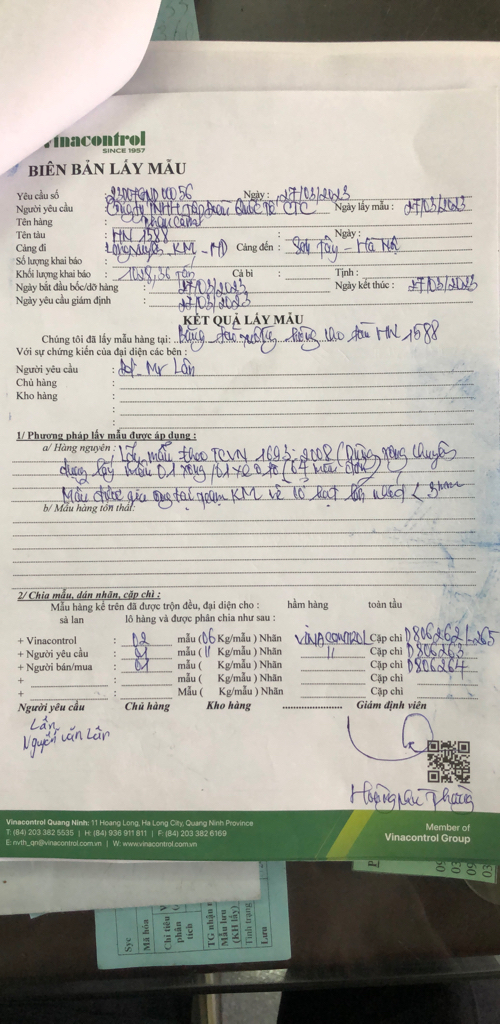 Vinacontrol
SINCE 1957
BIÊN BẢN LẤY MẪU
Yêu cầu số : Ngày : 27/03/2023
Người yêu cầu : Công ty TNHH Tập đoàn Quốc tế CTC Ngày lấy mẫu : 27/03/2023
Tên hàng :
Tên tàu : HN 1588 : Ngày :
Cảng đi : KM - Cảng đến : Sơn Tây - Hà Nội
Số lượng khai báo :
Khối lượng khai báo : 1028,36 Tấn Cả bì : Tịnh :
Ngày bắt đầu bốc/dỡ hàng : 27/03/2023 Ngày kết thúc : 27/03/2023
Ngày yêu cầu giám định : 27/03/2023
KẾT QUẢ LẤY MẪU
Chúng tôi đã lấy mẫu hàng tại : Băng tải xuống hàng cho tàu HN 1588
Với sự chứng kiến của đại diện các bên :
Người yêu cầu : Mr Lân
Chủ hàng :
Kho hàng :
1/ Phương pháp lấy mẫu được áp dụng :
a/ Hàng nguyên : Lấy mẫu theo TCVN 1693:2008 (Dùng xẻng chuyên
dụng lấy mẫu 01 xẻng/01 xe ô tô
Mẫu được gia công tại trạm KM về cỡ hạt lớn nhất < 3mm
b/ Mẫu hàng tổn thất:
2/ Chia mẫu, dán nhãn, cặp chì :
Mẫu hàng kể trên đã được trộn đều, đại diện cho : hầm hàng toàn tầu
sà lan lô hàng và được phân chia như sau :
+ Vinacontrol : 02 mẫu (06 Kg/mẫu ) Nhãn VINACONTROL Cặp chì D806262
+ Người yêu cầu : 01 mẫu ( 11 Kg/mẫu ) Nhãn 11 Cặp chì D806263
+ Người bán/mua : 01 mẫu ( Kg/mẫu ) Nhãn Cặp chì D806264
+ : mẫu ( Kg/mẫu ) Nhãn Cặp chì
+ : Mẫu ( Kg/mẫu ) Nhãn Cặp chì
Người yêu cầu Chủ hàng Kho hàng Giám định viên
Lân
Nguyễn Văn Lân
Vinacontrol Quang Ninh: 11 Hoang Long, Ha Long City, Quang Ninh Province
T: (84) 203 382 5535 | H: (84) 936 911 811 | F: (84) 203 382 6169
E: nvth_qn@vinacontrol.com.vn | W: www.vinacontrol.com.vn
Member of
Vinacontrol Group
Mã hóa
Chỉ tiêu
phân
tích
TG nhận
Mẫu lưu
(KH lấy)
Tình trạng
Lưu